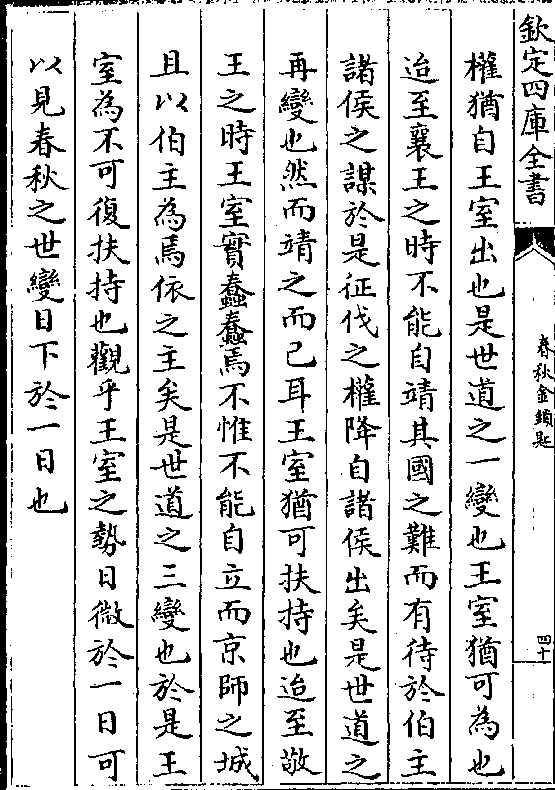 欽定四庫全書
春秋金鎖匙
四十
權猶自王室出也是世道之一變也王室猶可為也
迨至襄王之時不能自靖其國之難而有待於伯主
諸侯之謀於是征伐之權降自諸侯出矣是世道之
再變也然而靖之而已耳王室猶可扶持也迨至敬
王之時王室實蠢蠢焉不惟不能自立而京師之城
且以伯主為焉依之主矣是世道之三變也於是王
室為不可復扶持也觀乎王室之勢日微於一日可
以見春秋之世變日下於一日也